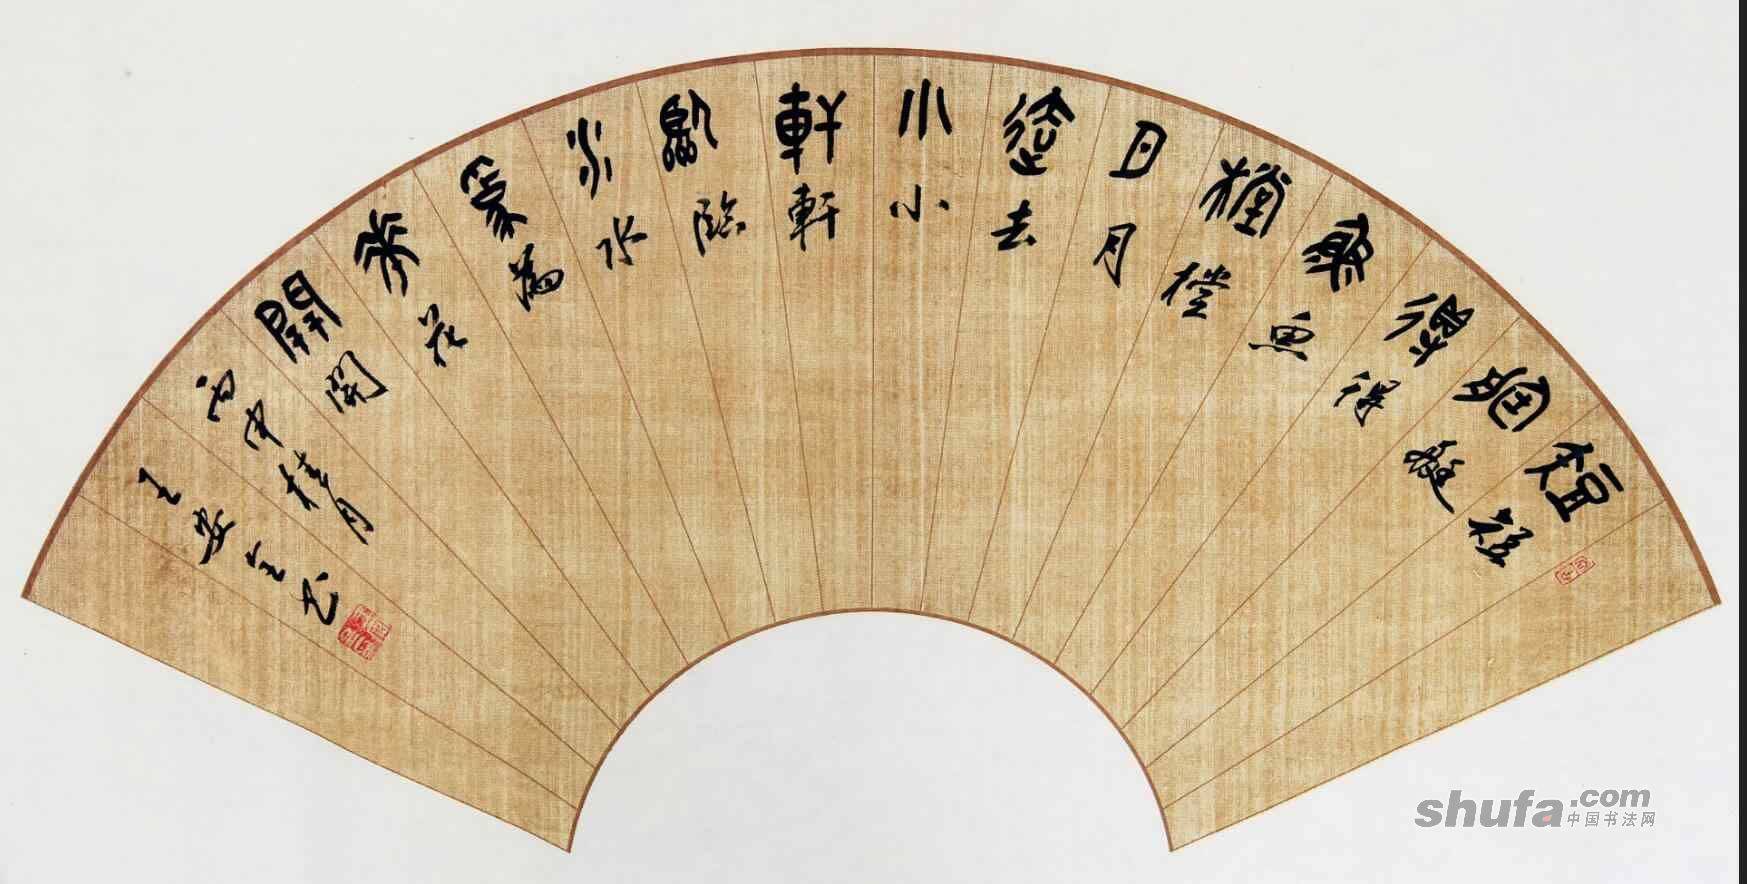 短短
艇艇
得得
魚魚
撐撐
月月
去去
小小
軒軒
臨臨
水水
為為
花花
開開
丙申桂月
王安
shufa.com
中国书法网